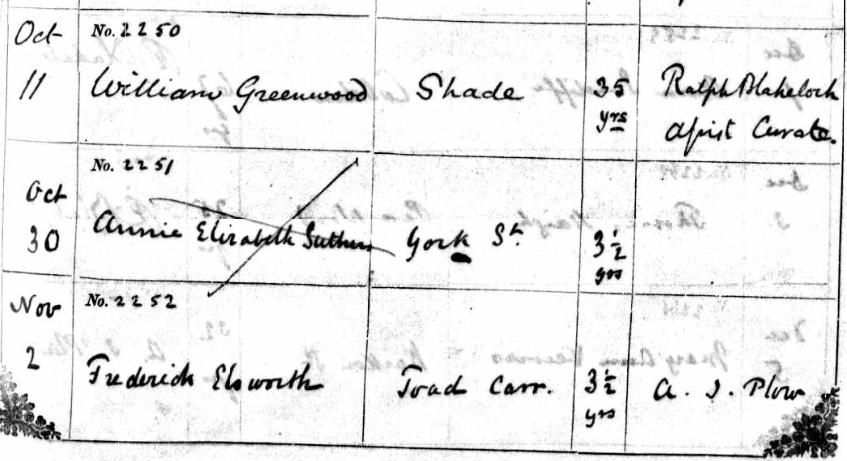 Oct No. 2250
11 William Greenwood Shade 35 yrs Ralph Blakelock
Assist Curate.
Oct No. 2251
30 Annie Elizabeth Suthers York St. 3½ yrs
Nov No. 2252
2 Frederick Elsworth Toad Carr. 3½ yrs A. J. Plow